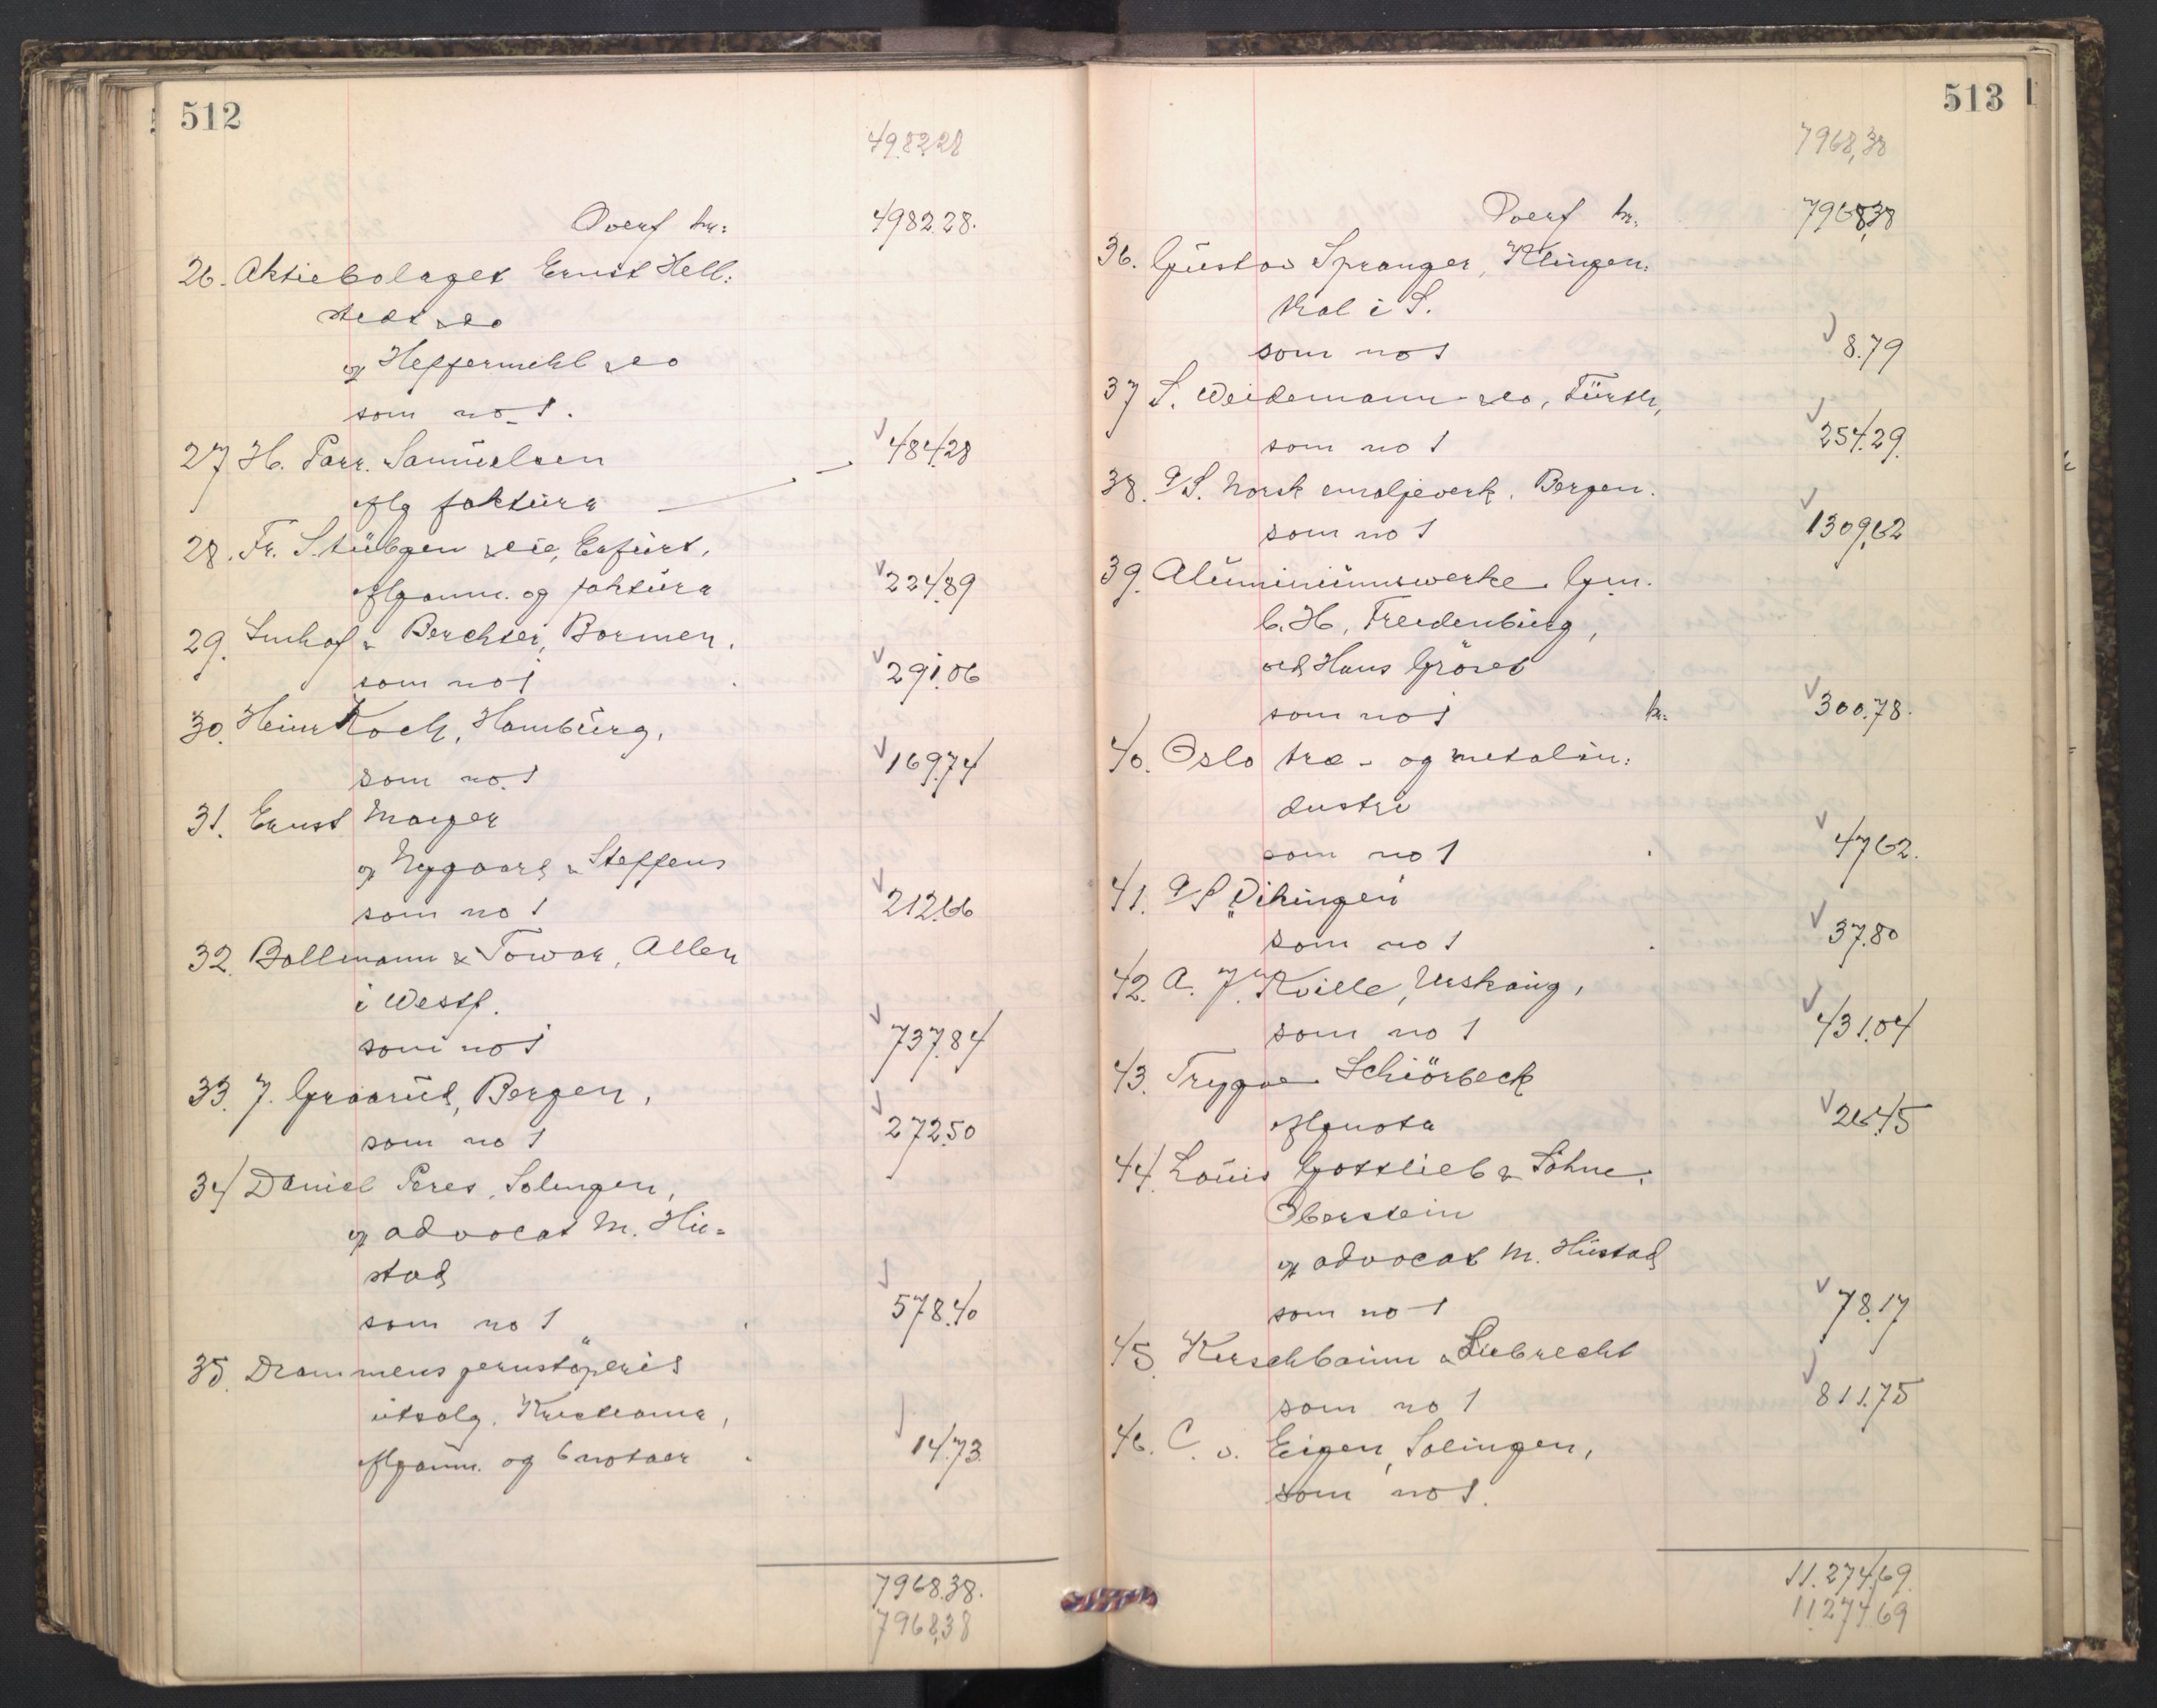 512
4982,28
Overf kr: 4982.28.
26. Aktiebolaget Ernst Hell:
stedt &Co
v/ Heffermehl &Co
som no 1.
484.28
27 H. Parr. Samuelsen
iflg faktura
28. Fr. Stübgen &Cie, Erfurt,
iflg anm. og faktura 224.89
29. Imhof & Berchter, Barmen.
som no 1 291.06
30. Heinr Koch, Hamburg,
som no 1 169.74
31. Ernst Mayer
v/ Nygaard & Steffens
som no 1 212.66
32. Ballmann & Towar, Allen
i Westf.
som no 1 737.84
33. J. Graarud, Bergen,
som no 1 272.50
34 Daniel Peres, Solingen,
v/ advocat M. Hu=
stad
som no 1 578.40
35. Drammens jernstöperis
utsalg, Kristiania,
iflg anm. og 6 notaer 14.73
7968.38.
7968,38
513
7968,38
Overf kr. 7968,38
36. Gustav Spranger, Klingen:
thal i S.
som no 1 8.79
37 S. Weidemann &Co, Fürth,
som no 1 254.29.
38. A/S. Norsk emaljeverk, Bergen.
som no 1 1309,62
39. Aluminiumswerke Gm.
b. H, Freudenburg,
ved Hans Gröset
som no 1 kr. 300.78.
40. Oslo træ- og metalin:
dustri
som no 1 47.62.
41. A/S „Vikingen"
som no 1 37.80
42. A. J. Kville, Urskaug,
som no 1 431.04
43. Trygve Schiörbeck
iflg nota 26.45
44. Louis Gottlieb & Söhne,
Oberstein
v/ advocat M. Hustad
som no 1 78.17
45. Kerschbaum & Liebrecht
som no 1 811.75
46. C. v. Eigen, Solingen,
som no 1.
11.274.69.
11.274.69